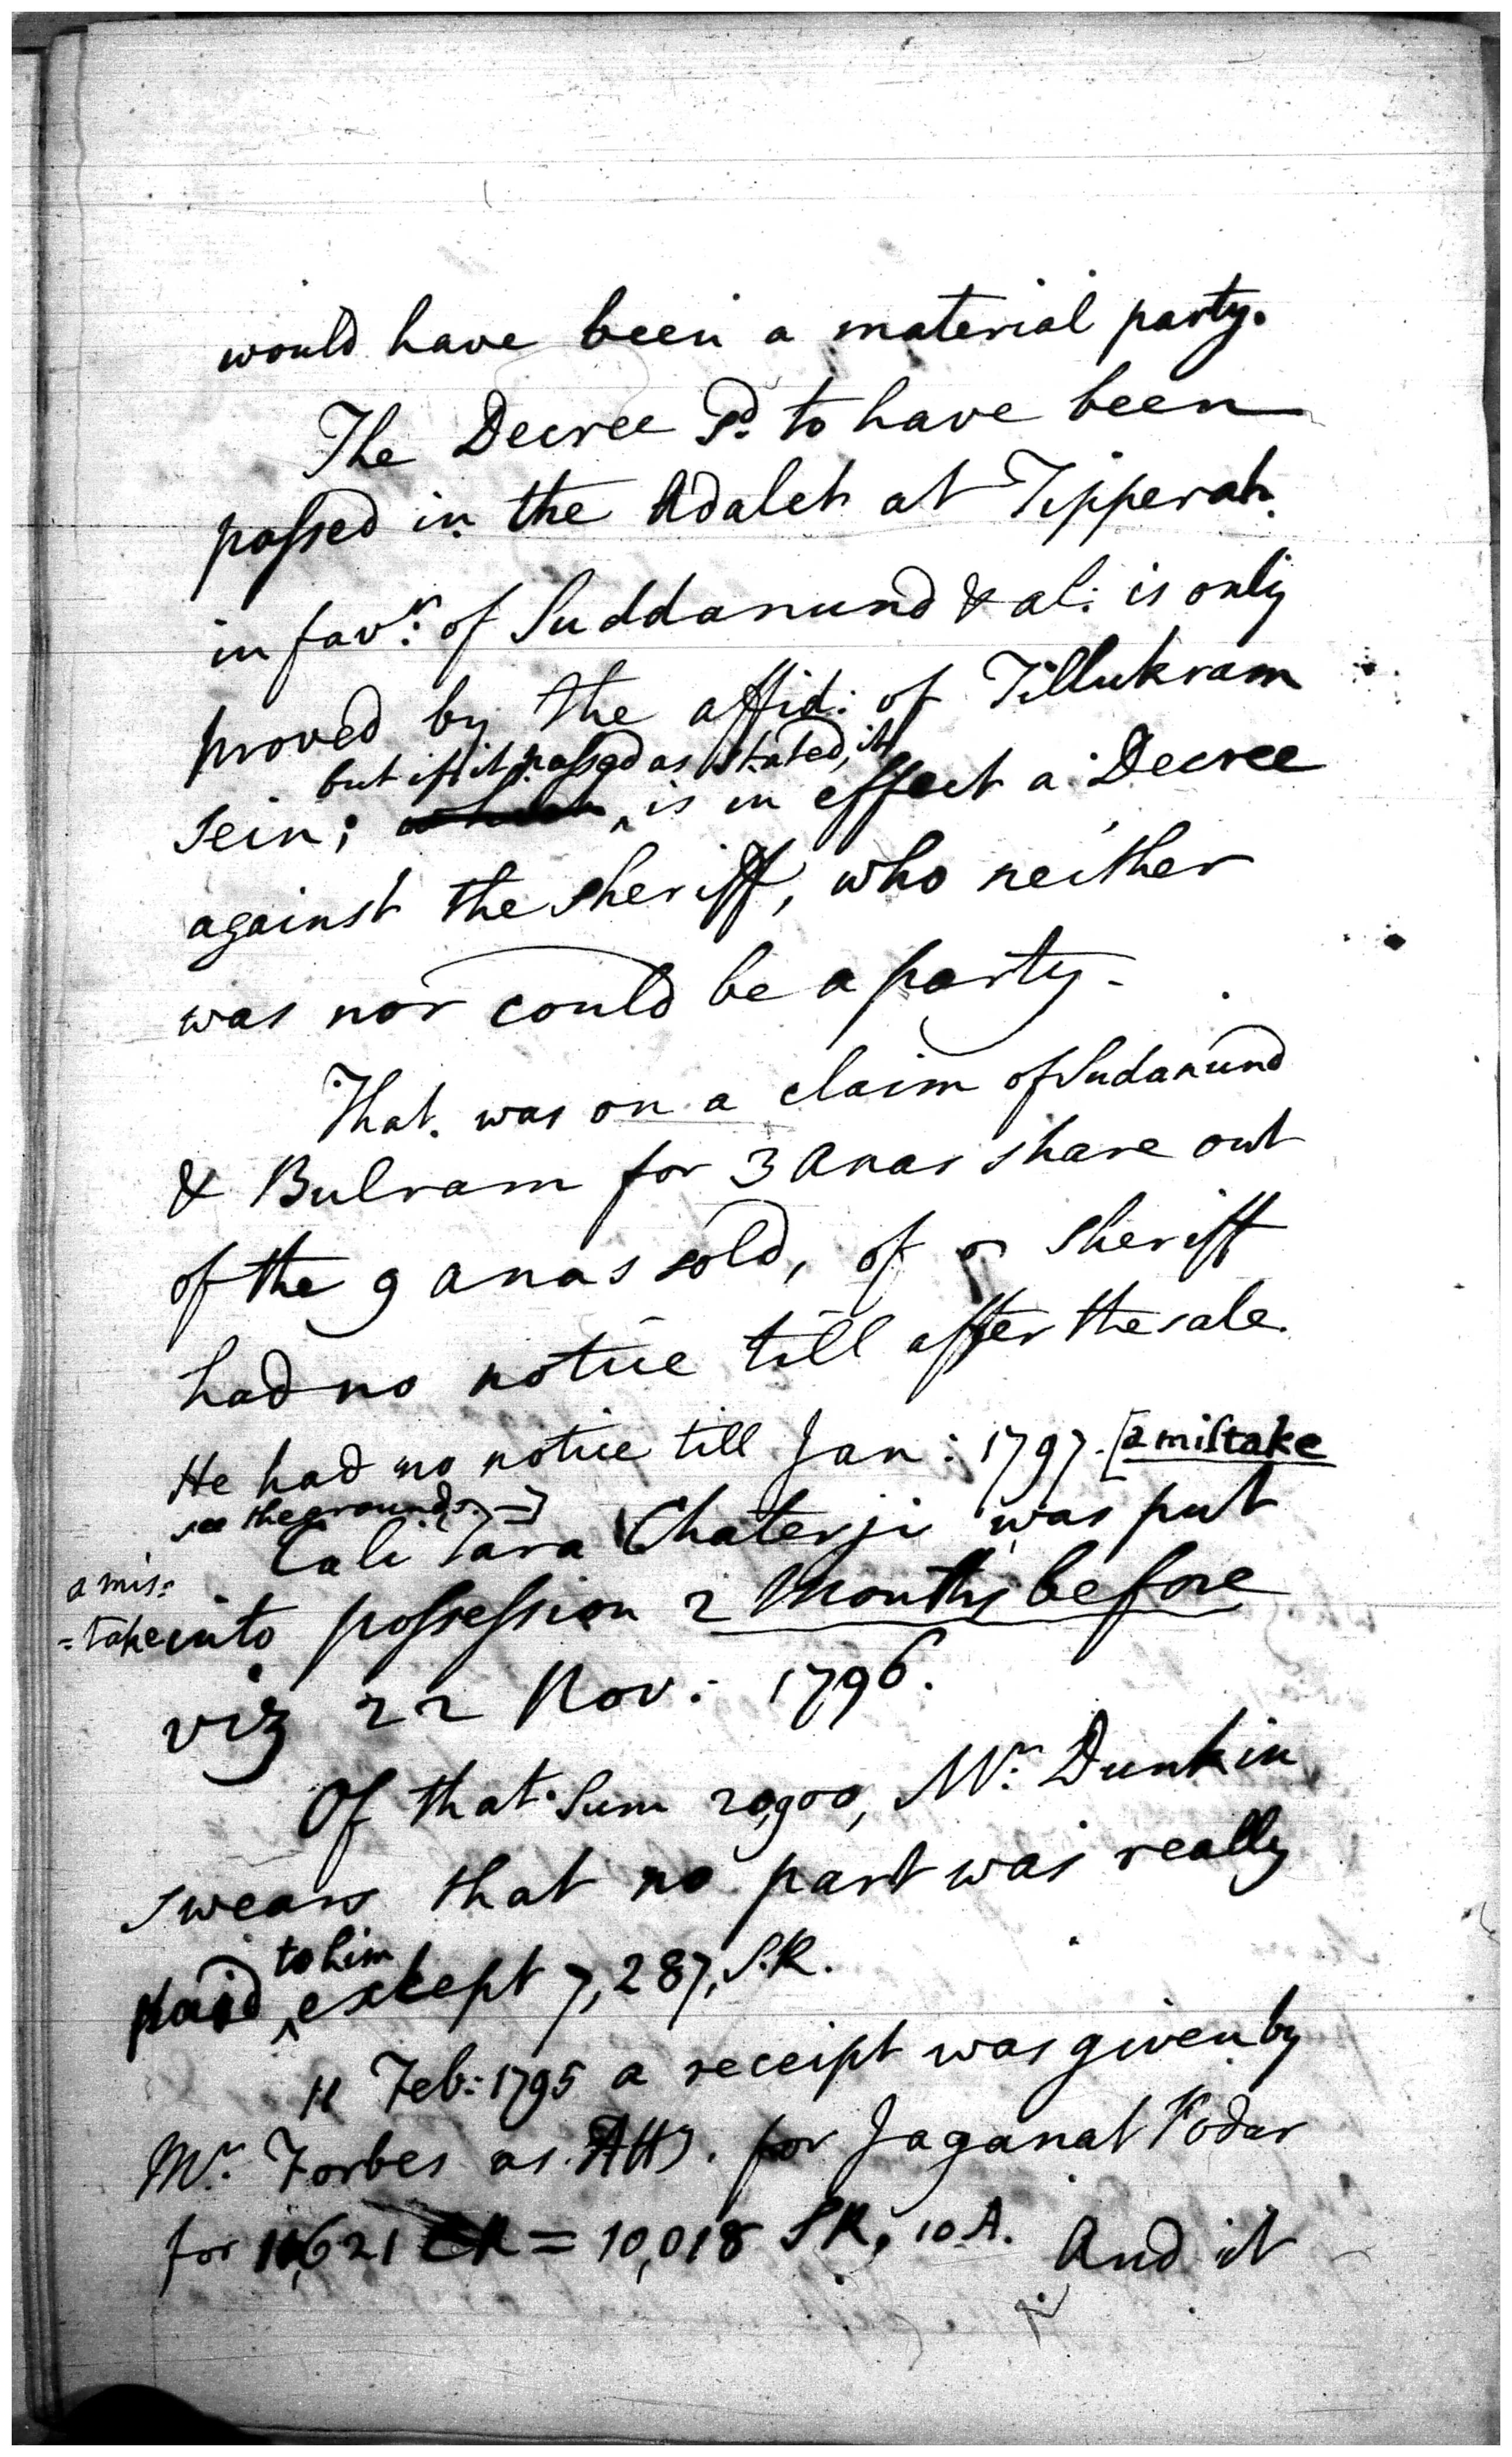 would have been a material party.
The Decree Sd. to have been
passed in the Adalet at Tipperah
in favr: of Suddanund & al: is only
proved by the affid: of Tillukram
but if it passed as stated, it
Sein; which ^ is in effect a Decree
against the Sheriff, who neither
was nor could be a party.
That was on a claim of Sudanund
& Bulram for 3 anas share out
of the 9 anas sold, of Sheriff
had no notice till after the sale.
He had no notice till Jan: 1797. [a mistake
see the grounds. =]
Cali Tara Chaterji was put
a mis=
=take into possession 2 Months before
viz 22 Nov: 1796.
Of that Sum 20,900, Mr: Dunkin
swears that no part was really
to him
paid ^ except 7,287, S.R.
Feb: 1795 a receipt was given by
Mr. Forbes as Atty. for Jaganat Podar
for 11,621 CR = 10,018 SR, 10 A. And it